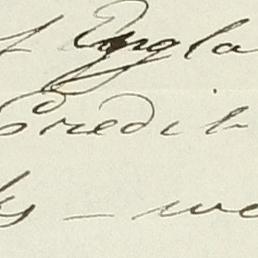 f Engla
Credit
ks – we